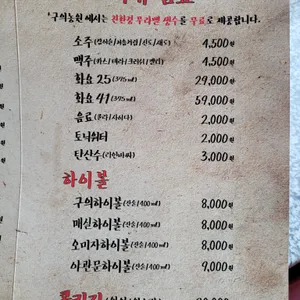 '구의농원'에서는 친환경 무라벨 생수를 무료로 제공합니다.
소주 4,500원
맥주 (카스/테라/크러쉬/켈리) 4,500원
화요 25 (375ml) 29,000원
화요 41 (375ml) 59,000원
음료 (콜라/사이다) 2,000원
토닉워터 2,000원
탄산수 3,000원
하이볼
구의하이볼 (산송/400ml) 8,000원
매실하이볼 (산송/400ml) 8,000원
오미자하이볼 (산송/400ml) 8,000원
야관문하이볼 (산송/400ml) 9,000원